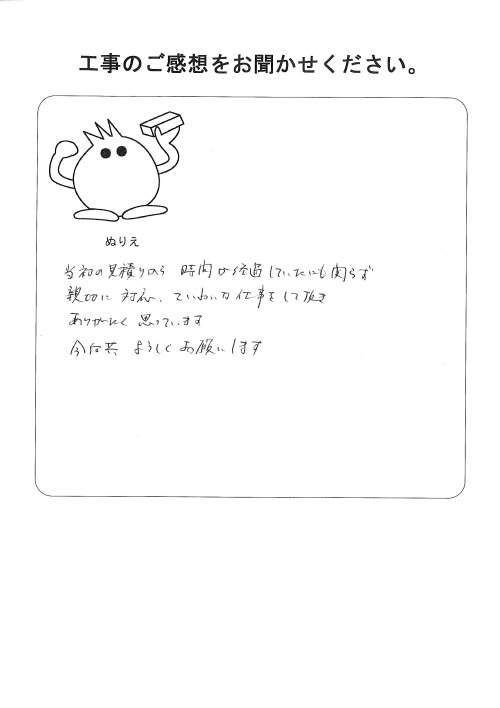 工事のご感想をお聞かせください。
ぬりえ
当初の見積りから 時間が経過していたにも関らず
親切に 対応、ていねいな仕事をして頂き
ありがたく 思っています
今后共 よろしくお願いします